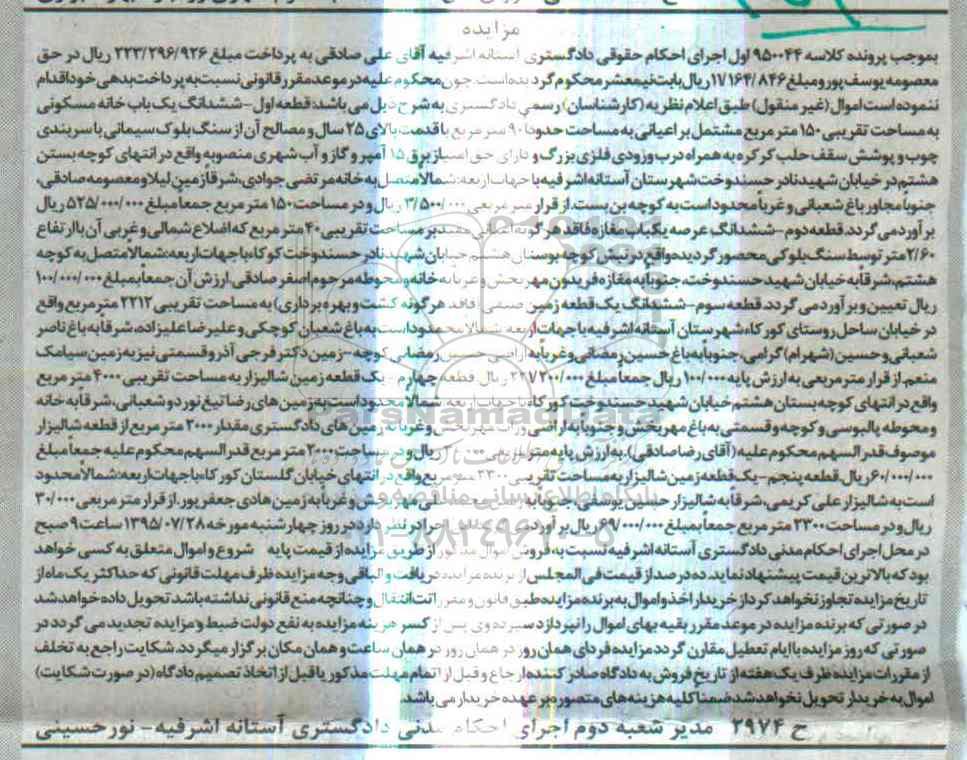 مزایده
بموجب پرونده کلاسه ۹۵۰۰۴۴ اول اجرای احکام حقوقی دادگستری آستانه اشرفیه آقای علی صادقی به پرداخت مبلغ ۲۲۳/۲۹۶/۹۲۶ ریال در حق
معصومه یوسف پور و مبلغ ۱۷/۱۶۴/۸۴۶ ریال بابت نیمعشر محکوم گردیده است. چون محکوم علیه در موعد مقرر قانونی نسبت به پرداخت بدهی خود اقدام
ننموده است اموال (غیر منقول) طبق اعلام نظریه (کارشناسان) رسمی دادگستری به شرح ذیل می باشد: قطعه اول - ششدانگ یک باب خانه مسکونی
به مساحت تقریبی ۱۵۰ متر مربع مشتمل بر اعیانی به مساحت حدود ۹۰ متر مربع با قدمت بالای ۲۵ سال و مصالح آن از سنگ بلوک سیمانی با سربندی
چوب و پوشش سقف حلب کرکره به همراه درب ورودی فلزی بزرگ و دارای حق امتیاز برق ۱۵ آمپر و گاز و آب شهری منصوبه واقع در انتهای کوچه بستن
هشتم در خیابان شهید نادر حسندوخت شهرستان آستانه اشرفیه با جهات اربعه: شمالا متصل به خانه مرتضی جوادی، شرقا زمین لیلا و معصومه صادقی،
جنوبا مجاور باغ شعبانی و غربا محدود است به کوچه بن بست. از قرار متر مربعی ۳/۵۰۰/۰۰۰ ریال و در مساحت ۱۵۰ متر مربع جمعا مبلغ ۵۲۵/۰۰۰/۰۰۰ ریال
برآورد می گردد. قطعه دوم - ششدانگ عرصه یکباب مغازه فاقد هر گونه اعیانی مستند بر مساحت تقریبی ۴۰ متر مربع که اضلاع شمالی و غربی آن با ارتفاع
۲/۶۰ متر توسط سنگ بلوکی محصور گردیده واقع در نبش کوچه بوستان هشتم خیابان شهید نادر حسندوخت کوکاه با جهات اربعه: شمالا متصل به کوچه
هشتم، شرقا به خیابان شهید حسندوخت، جنوبا به مغازه فریدون مهربخش و غربا به خانه و محوطه مرحوم اصغر صادقی. ارزش آن جمعا بمبلغ ۱۰۰/۰۰۰/۰۰۰
ریال تعیین و برآورد می گردد. قطعه سوم - ششدانگ یک قطعه زمین صیفی (فاقد هرگونه کشت و بهره برداری) به مساحت تقریبی ۲۲۱۲ متر مربع واقع
در خیابان ساحل روستای کورکاه شهرستان آستانه اشرفیه با جهات اربعه: شمالا محدود است به باغ شعبان کوچکی و علیرضا علیزاده، شرقا به باغ ناصر
شعبانی و حسین (شهرام) گرامی، جنوبا به باغ حسین رمضانی و غربا به اراضی حسین رمضانی کوچه - زمین دکتر فرجی آذر و قسمتی نیز به زمین سیامک
منعم. از قرار متر مربعی به ارزش پایه ۱۰۰/۰۰۰ ریال جمعا مبلغ ۲۲۷/۲۰۰/۰۰۰ ریال. قطعه چهارم - یک قطعه زمین شالیزار به مساحت تقریبی ۴۰۰۰ متر مربع
واقع در انتهای کوچه بستان هشتم خیابان شهید حسندوخت کورکاه با جهات اربعه: شمالا محدود است به زمین های رضا تیغ نورد و شعبانی، شرقا به خانه
و محوطه پالبوسی و کوچه و قسمتی به باغ مهربخش و جنوبا به اراضی وراث مهربخش و غربا به زمین های دادگستری مقدار ۲۰۰۰ متر مربع از قطعه شالیزار
موصوف قدر السهم محکوم علیه (آقای رضا صادقی). به ارزش پایه متر مربعی ریال و در مساحت ۲۰۰۰ متر مربع قدر السهم محکوم علیه جمعا مبلغ
۶۰/۰۰۰/۰۰۰ ریال. قطعه پنجم - یک قطعه زمین شالیزار به مساحت تقریبی ۲۳۰۰ متر مربع واقع در انتهای خیابان گلستان کورکاه با جهات اربعه: شمالا محدود
است به شالیزار علی کریمی، شرقا به شالیزار حسین یوسفی، جنوبا به زمین و غربا به زمین هادی جعفرپور. از قرار متر مربعی ۳۰/۰۰۰
ریال و در مساحت ۲۳۰۰ متر مربع جمعا بمبلغ ۶۹/۰۰۰/۰۰۰ ریال برآورد اجرا در نظر دارد در روز چهارشنبه مورخه ۱۳۹۵/۰۷/۲۸ ساعت ۹ صبح
در محل اجرای احکام مدنی دادگستری آستانه اشرفیه نسبت به فروش اموال مذکور از طریق مزایده از قیمت پایه شروع و اموال متعلق به کسی خواهد
بود که بالاترین قیمت پیشنهاد نماید. ده درصد از قیمت فی المجلس از برنده مزایده دریافت و الباقی وجه مزایده ظرف مهلت قانونی که حداکثر یک ماه از
تاریخ مزایده تجاوز نخواهد کرد از خریدار اخذ و اموال به برنده مزایده طبق قانون و مقررات انتقال و چنانچه منع قانونی نداشته باشد تحویل داده خواهد شد
در صورتی که برنده مزایده در موعد مقرر بقیه بهای اموال را نپردازد سپرده وی پس از کسر هزینه مزایده به نفع دولت ضبط و مزایده تجدید می گردد در
صورتی که روز مزایده با ایام تعطیل مقارن گردد مزایده فردای همان روز در همان روز در همان ساعت و همان مکان برگزار میگردد. شکایت راجع به تخلف
از مقررات مزایده ظرف یک هفته از تاریخ فروش به دادگاه صادر کننده ارجاع و قبل از اتمام مهلت مذکور یا قبل از اتخاذ تصمیم دادگاه (در صورت شکایت)
اموال به خریدار تحویل نخواهد شد ضمنا کلیه هزینه های متصوره بر عهده خریدار می باشد.
ح ۲۹۷۴ مدیر شعبه دوم اجرای احکام مدنی دادگستری آستانه اشرفیه - نورحسینی
ParsNamadData
پایگاه اطلاع رسانی مناقصه و
۰۲۱-۸۸۳۴۹۶۷۰-۵